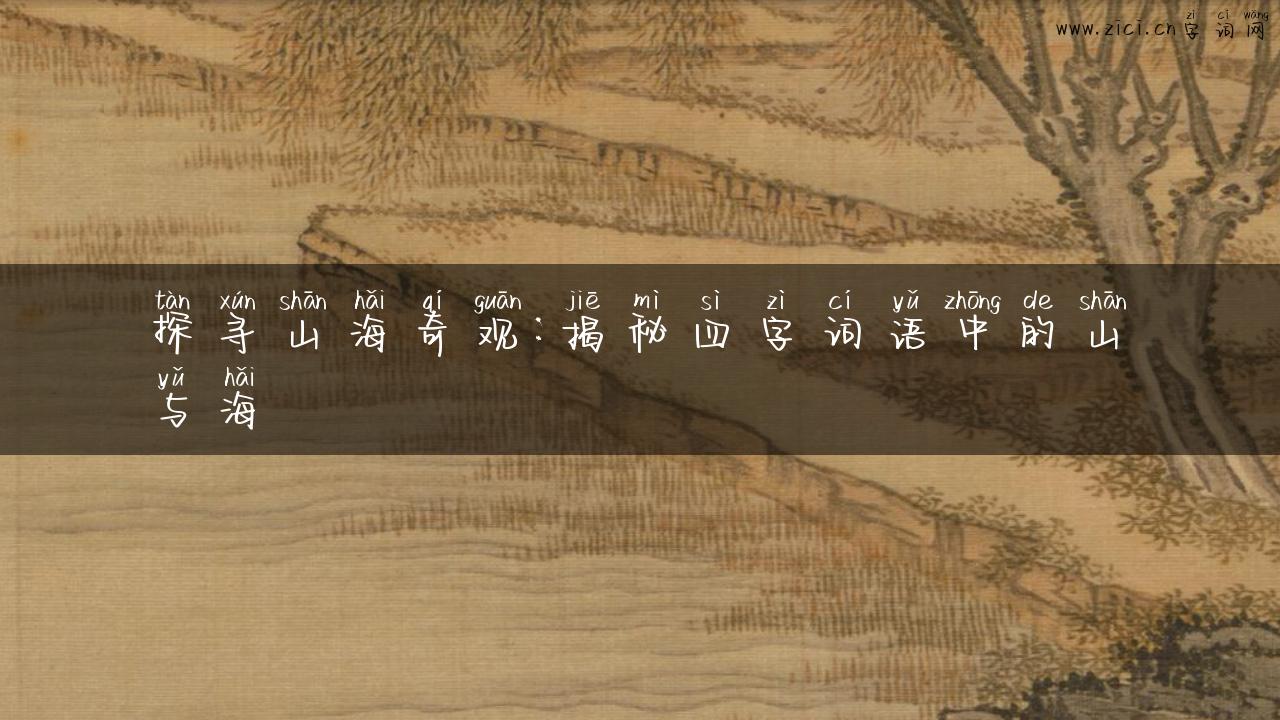 zì cí wǎng
www.zici.cn字词网
tàn xún shān hǎi qí guān jiē mì sì zì cí yǔ zhōng de shān
探寻山海奇观:揭秘四字词语中的山
yǔ hǎi
与海